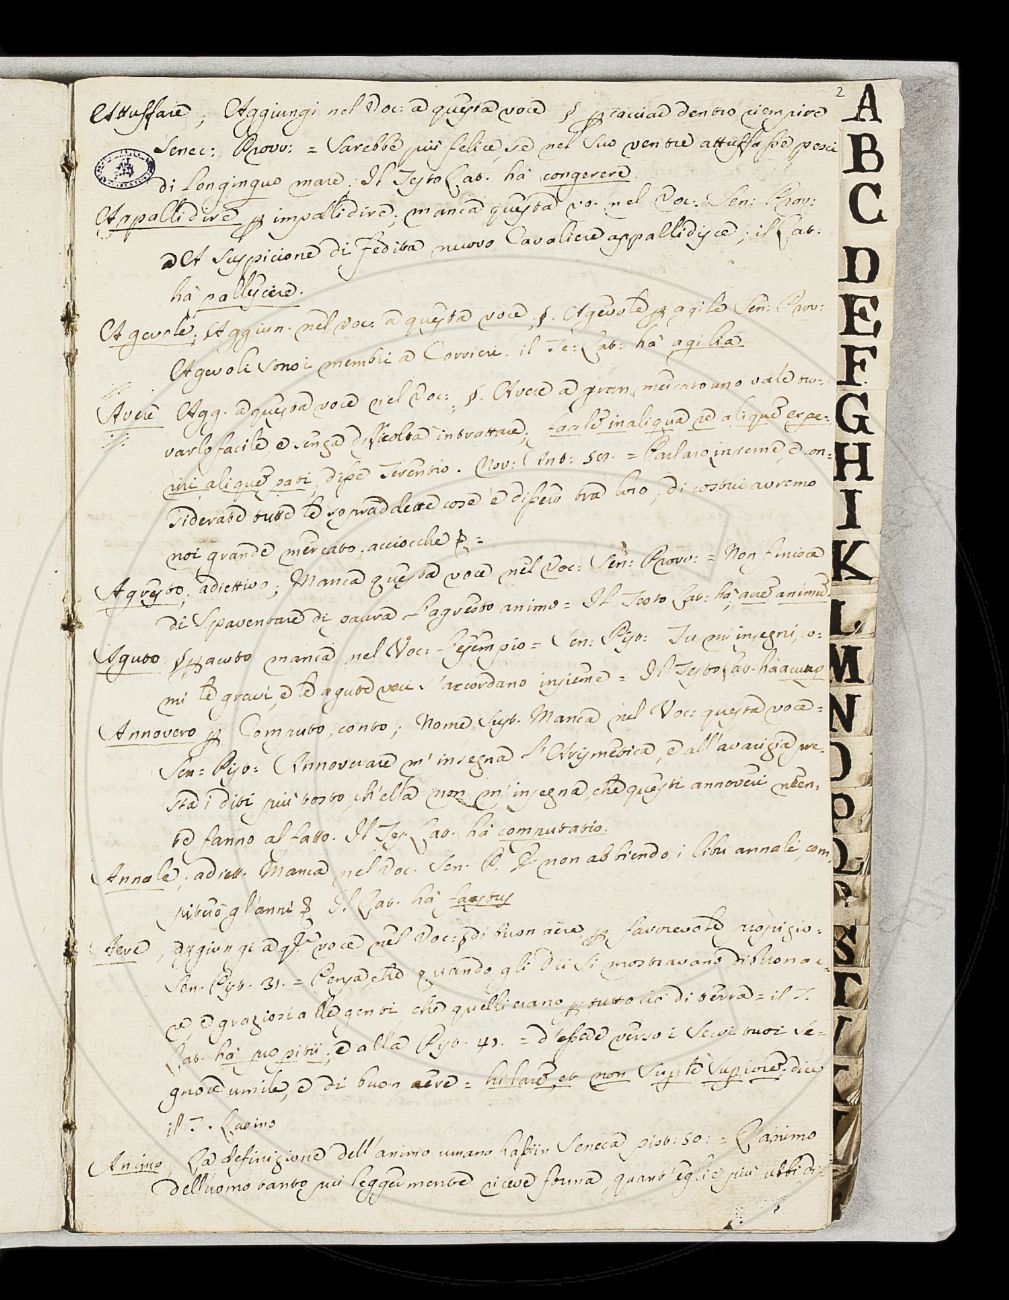 2
Attuffare; Aggiungi nel Voc: a questa voce § per cacciar dentro riempire
Senec: Provv: = Sarebbe più felice, se nel suo ventre attuffasse pesci
di longinquo mare; Il Testo Lat. ha congerere.
Appallidire per impallidire; manca questa vo. nel Voc: Sen: Prov:
A suspicione di fedita nuovo Cavaliere appallidisce; il Lat:
ha pallescere.
Agevole; Aggiun. nel Voc. a questa voce, §. Agevole per agile Sen: Prov:
Agevoli sono i membri a Corrieri. il Te: Lat: ha agilia.
Avere Agg. a questa voce nel Voc: §. Avere a gran mercato uno vale tro-
varlo facile e senza difficoltà in trattare; facile in aliqua re aliquem expe-
riri, aliquem pati, disse Terenzio. Nov: Ant: = Parlaro insieme, e con-
siderate tutte le sopraddette cose e dissero tra loro, di costui avremo
noi grande mercato, acciocche =
Agresto; adiettivo; Manca questa voce nel Voc: Sen: Provv: = Non finisca
di spaventare di paura l'agresto animo = Il Testo Lat: ha
Aguto per acuto manca nel Voc: L'esempio = Sen: Pist: Tu m'insegni, co-
mi le gravi, e le agute voci s'accordano insieme = Il Testo Lat. ha acutas
Annovero per Computo, conto; Nome Sust. Manca nel Voc: questa voce =
Sen: Pist: Annoverare m'insegna l'Arismetica, e all'avarizia pre-
sta i diti più tosto ch'ella non m'insegna, che questi annoveri nien-
te fanno al fatto. Il Tes. Lat. ha computatio.
Annale; adiett. Manca nel Voc. Sen. P. non abbiendo i libri annale, com-
gl'anni Il Lat. ha fastus
Aere, aggiungi a questa voce nel Voc: § di buon aere per favorevole propizio:
Sen. Pist. 31. = Pensa che quando gli Dii si mostravano di buono a-
re e graziosi alle genti che quelli erano per tutto di terra = il T.
Lat. ha propitii; e alla Pist. 47. = d'essere verso i servi tuoi se-
gnore umile, e di buon aere = hilare, et non superbe superiorem, dice
il T. Latino
Animo, La definizione dell'animo umano Seneca pist: 50: = L'animo
dell'uomo tanto più leggermente riceve forma, quant'egli è più ubbidi-
A
B
C
D
E
F
G
H
I
K
L
M
N
O
P
Q
R
S
T
V